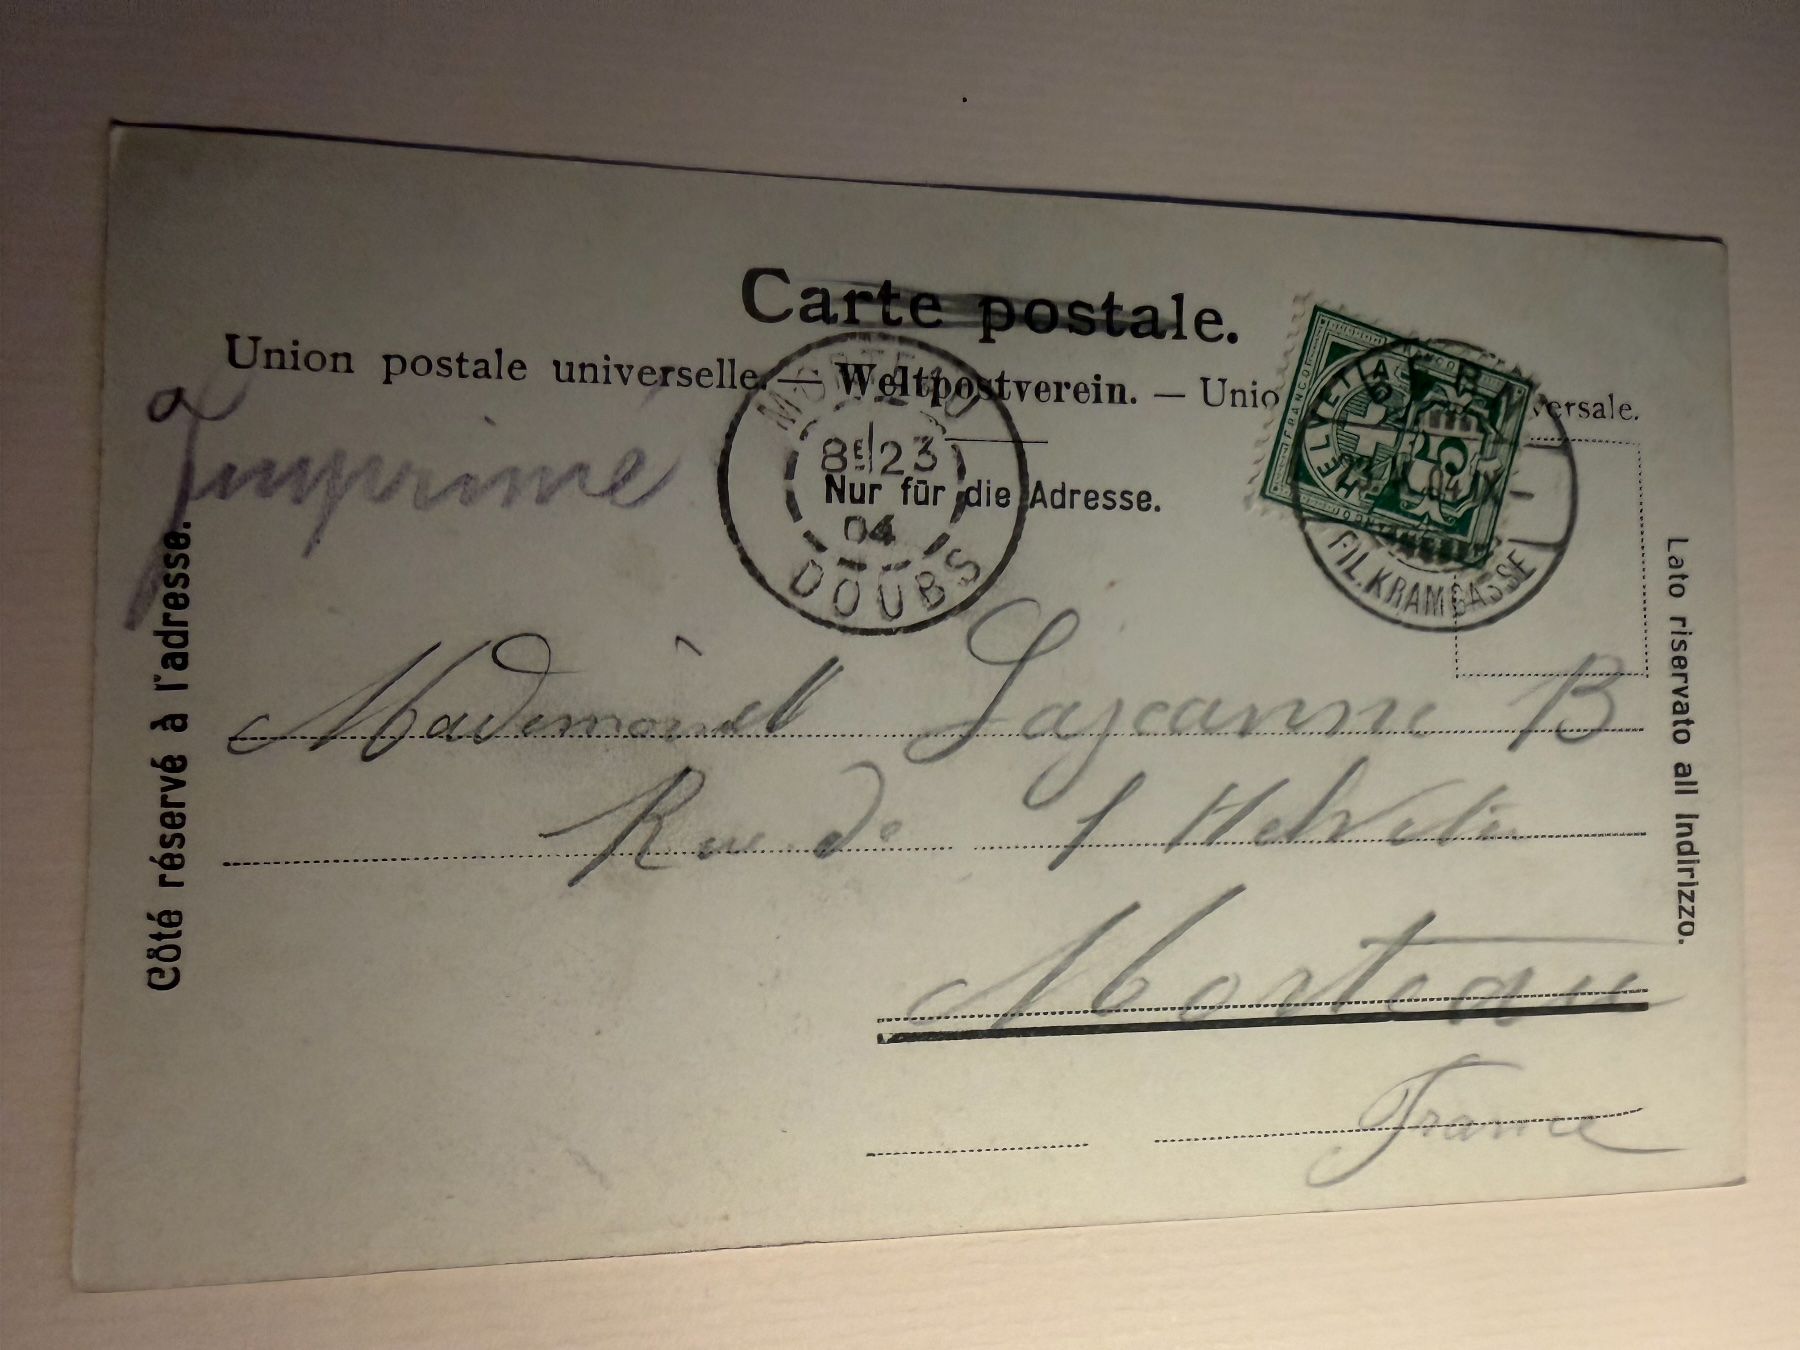 Carte postale.
Union postale universelle. — Weltpostverein. — Unio versale.
Imprimé
MORTEAU
8E 23
04
DOUBS
Nur für die Adresse.
HELVETIA
FRANCO
5
04
FIL. KRAMGASSE
Côté réservé à l'adresse.
Lato riservato all Indirizzo.
Mademoisell Lajeanne B
Rue de l Helvetie
Morteau
France